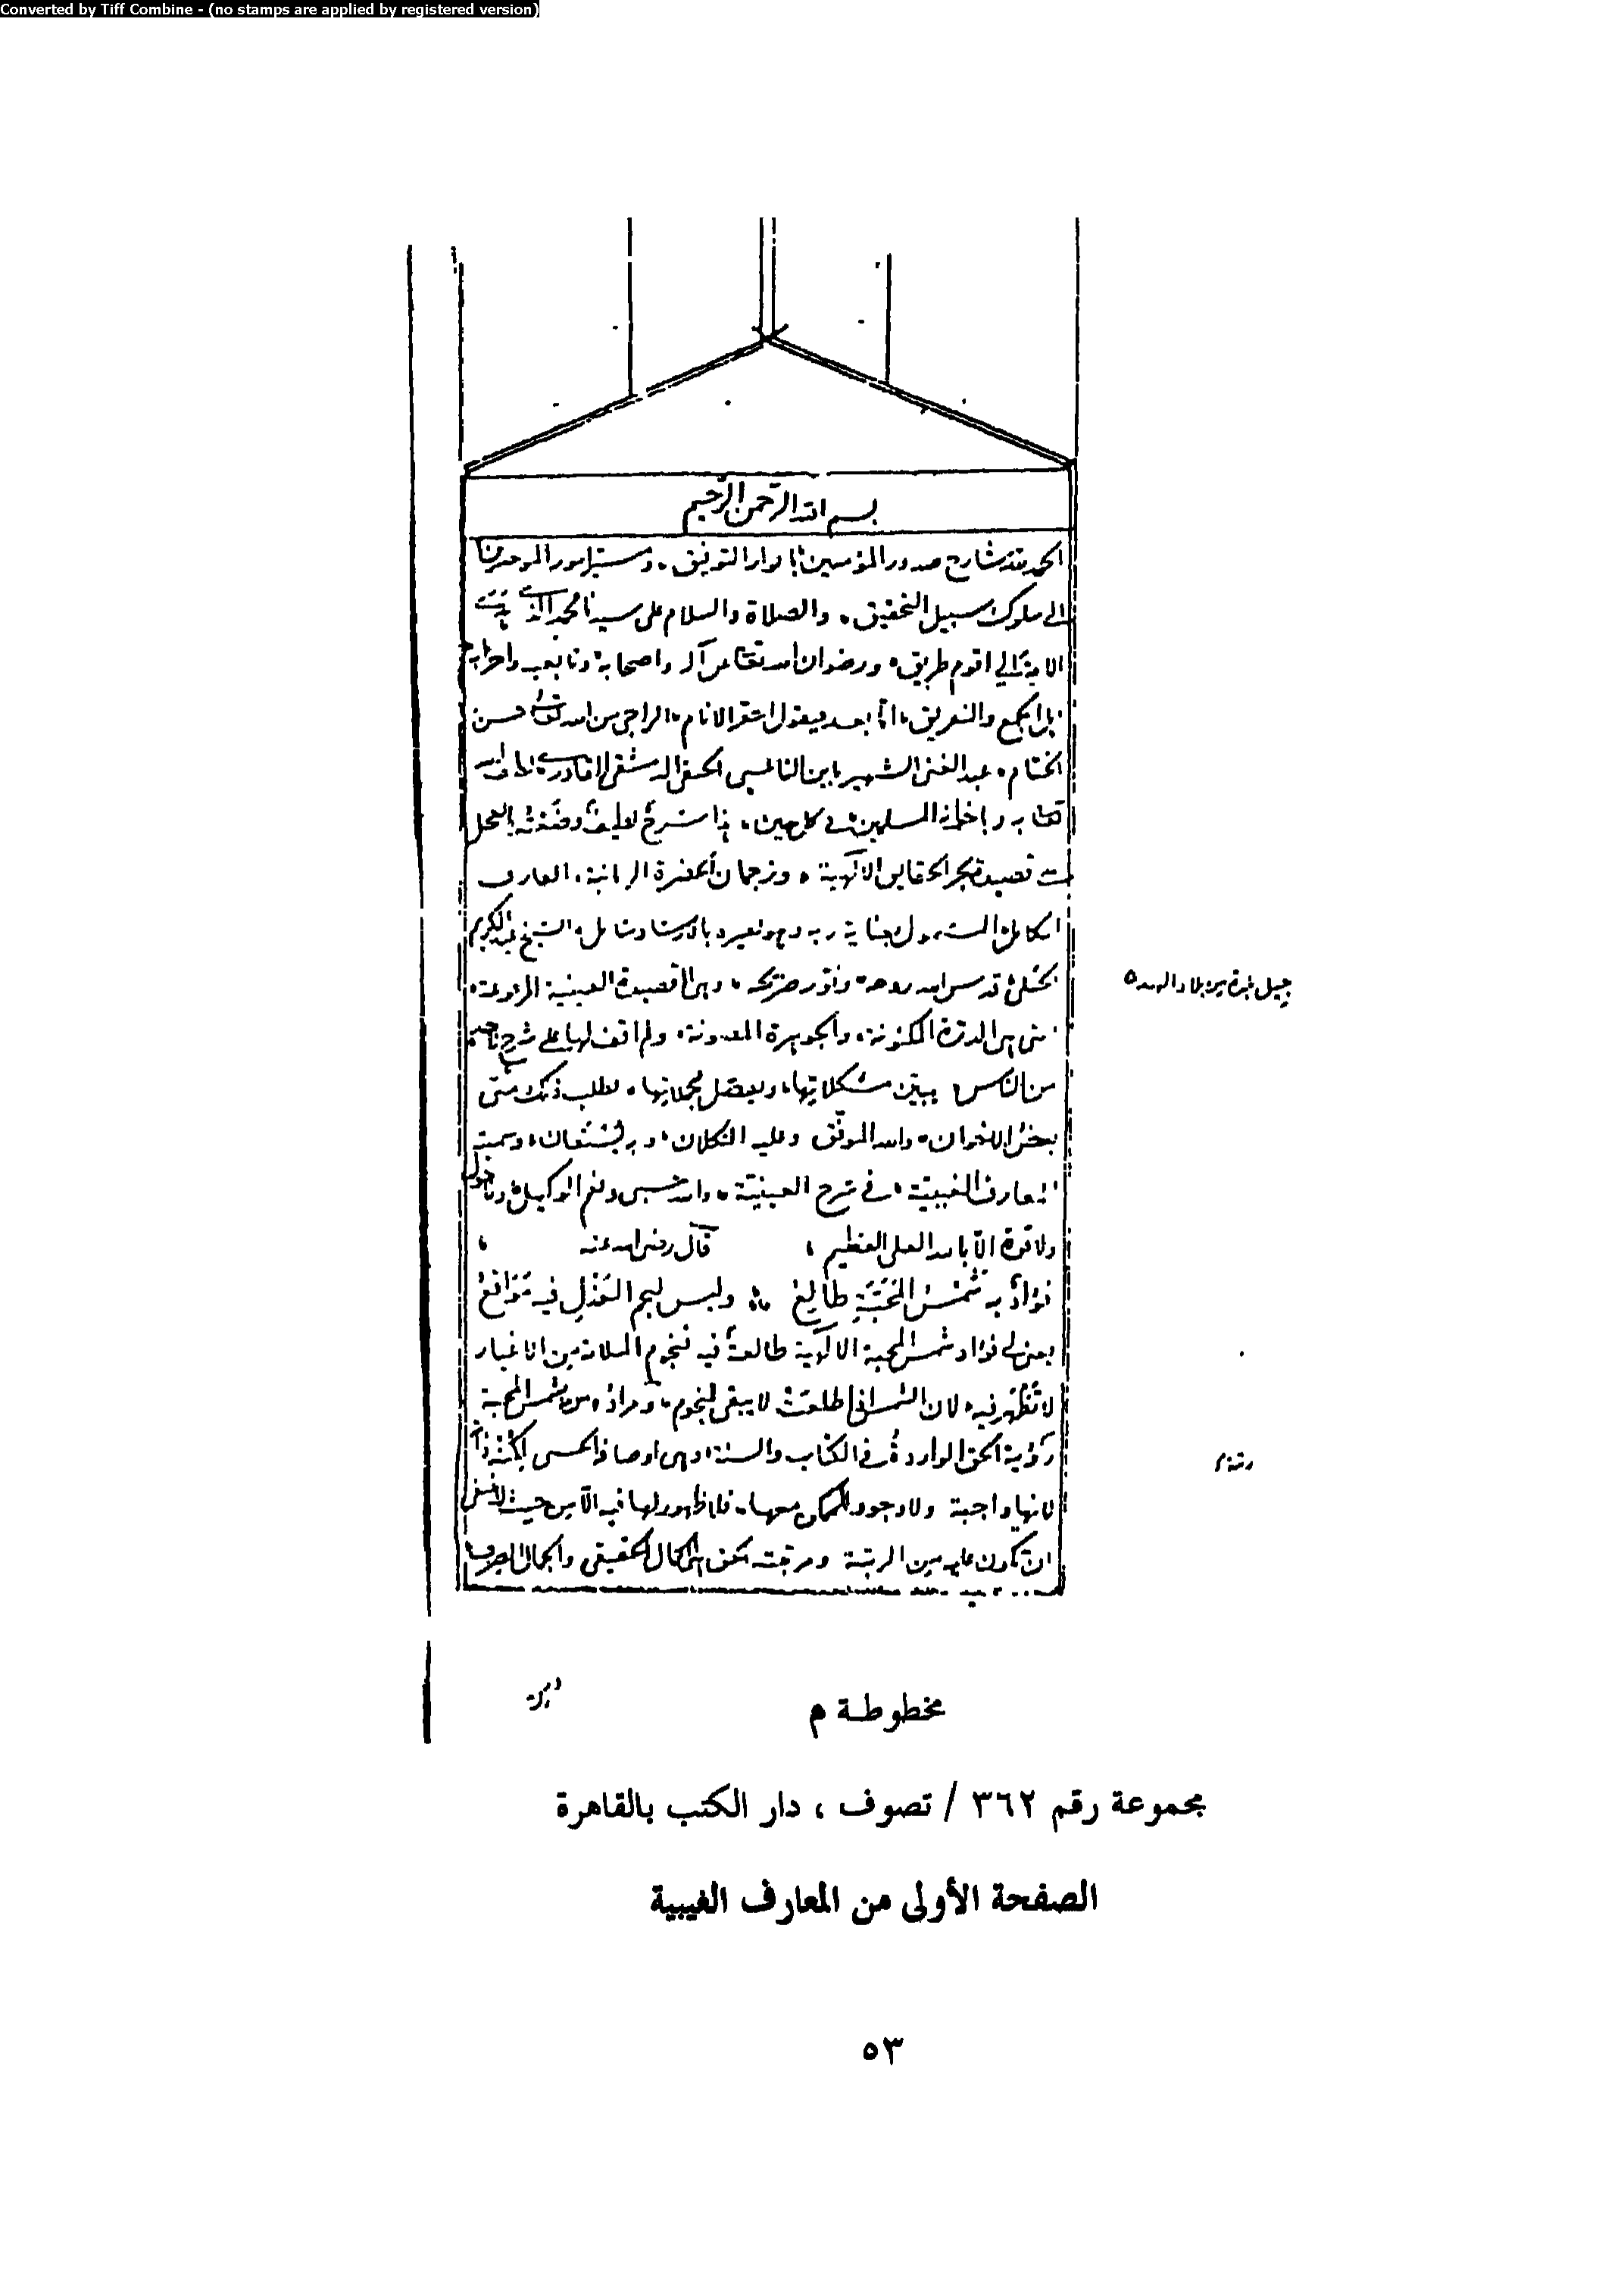 Converted by Tiff Combine - (no stamps are applied by registered version)
بسم الله الرحمن الرحيم
الحمد لله شارح صدور المؤمنين بانوار التوفيق، وميسر امور الموحدين
الى سلوك سبيل التحقيق، والصلاة والسلام على سيدنا محمد الذي
الامة الى اقوم طريق، ورضوان الله تعالى عن آله واصحابه وتابعيه واحزابه
الجمع والتفريق، اما بعد فيقول احقر الانام، الراجي من الله تعالى حسن
الختام، عبد الغني الشهير بابن النابلسي الحنفي الدمشقي القادري
تعالى به وباخوانه المسلمين في كل حين، هذا شرح لطيف وضعته
قصيدة بحر الحقايق الالهية، وترجمان الحضرة الربانية، العارف
الكامل، المشمول بعناية ربه الشيخ عبد الكريم
الجيلي قدس الله روحه، ونور ضريحه، وهي القصيدة العينية
جيل بلاد الهند
هي الدرة المكنونة، والجوهرة المصونة، ولم اقف لها على شرح
من الناس يبين مشكلاتها، ويفصل مجملاتها، فطلب ذلك مني
بعض الاخوان، والله الموفق وعليه التكلان، وبه المستعان، وسميته
المعارف الغيبية، في شرح العينية، والله حسبي ونعم الوكيل، ولا حول
ولا قوة الا بالله العلي العظيم، قال رضي الله عنه،
فؤاد به شمس المحبة طالع وليس لنجم العذل فيه مواقع
يعني لي فؤاد شمس المحبة الالهية طالعة فيه فنجوم الملامة من الاغيار
لا تظهر فيه، لان الشمس اذا طلعت لا يبقى لنجوم، ومراده من شمس المحبة
رؤية الحق الواردة في الكتاب والسنة، وهي اوصافه الحسنى
لانها واجبة ولا وجود للممكن معها، فلا ظهور لها فيه الا من حيث
ان تكون عليه من الرتبة الكمال الحقيقي والجمال الصرف
مخطوطة م
مجموعة رقم ٣٦٢ / تصوف ، دار الكتب بالقاهرة
الصفحة الأولى من المعارف الغيبية
٥٣